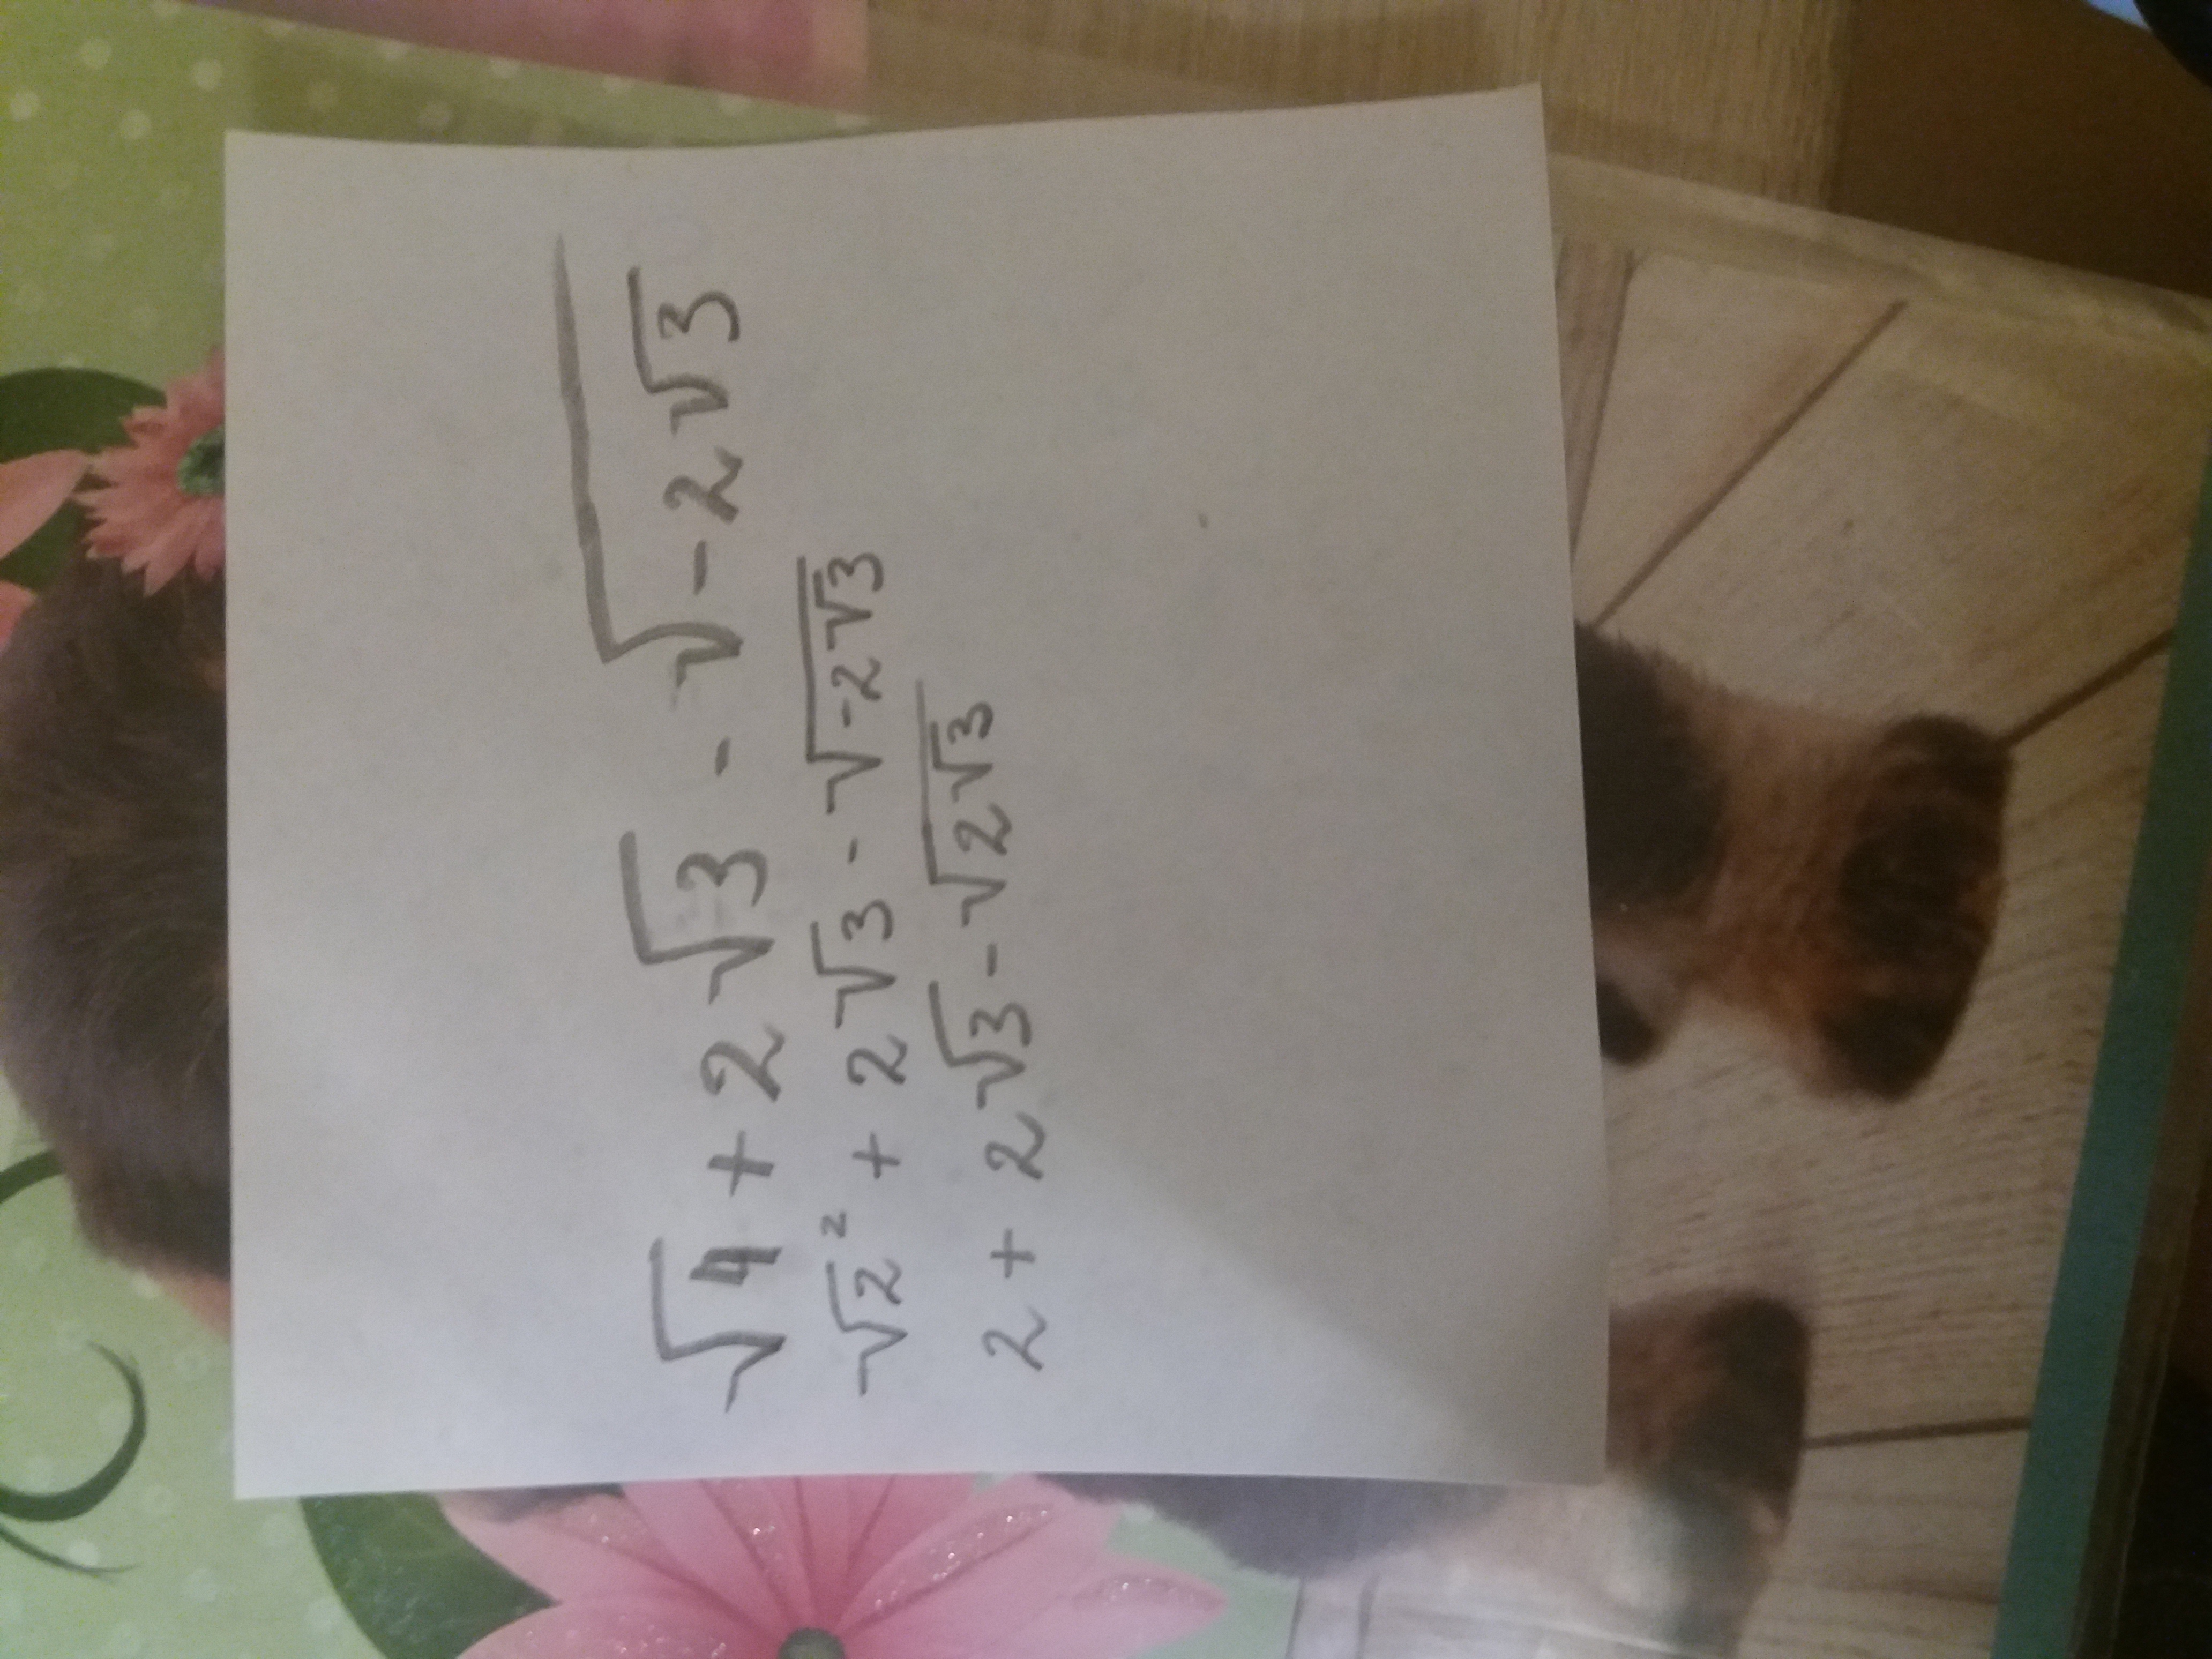 √4 + 2√3 - √(-2√3)
√2² + 2√3 - √(-2√3)
2 + 2√3 - √(2√3)